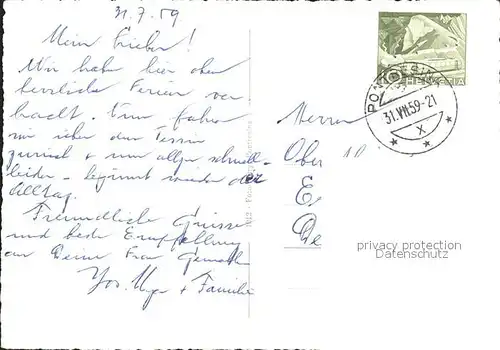 31.7.59
Mein Lieber!
Wir haben hier oben
herrliche Ferien ver
bracht. Nun fahren
wir über den Tessin
zurück + nun allzu schnell -
leider - beginnt wieder der
Alltag.
Freundliche Grüsse
und beste Empfehlung
an Deine Frau Gemahlin
+ Familie
HELVETIA
PONTRESINA
31.VII.59-21
X
Herrn
Ober
E
De
privacy protection
watermark